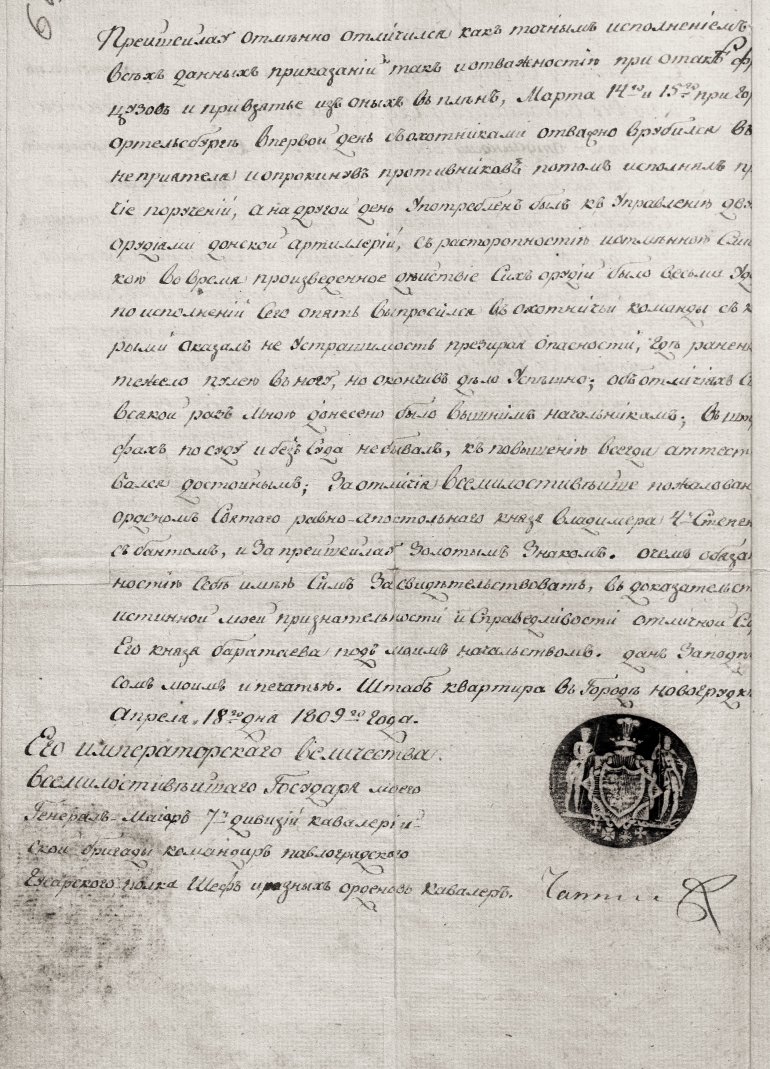 Прейтсилау отмѣнно отличился какъ точнымъ исполненіемъ
всѣхъ данныхъ приказаній такъ и отважностію при отакѣ фр
цузовъ и при взятье изъ оныхъ въ плѣнъ, Марта 14го и 15го при гор
ортельсбургѣ в первой день съ охотниками отважно врубился въ
непріятеля и опрокинувъ противниковъ потомъ исполнялъ пр
чіе порученій, а на другой день употребленъ былъ къ управленію дву
орудіями донской артиллерій, съ расторопностію и отмѣнною
кою во время произведенное дѣйствіе сихъ орудій было весьма уда
по исполненій сего опять выпросился въ охотничьи команды съ к
рыми оказалъ неустрашимость презирая опасности, гдѣ раненъ
тежело пулею въ ногу, но окончивъ дѣло успѣшно; объ отличіяхъ с
всякой разъ мною донесено было вышнимъ начальникамъ; въ шт
фахъ по суду и безъ суда небывалъ, къ повышенію всегда аттест
вался достойнымъ; За отличія всемилостивѣйше пожалован
орденомъ Святаго равно-апостольнаго князя владимера 4й Степен
съ бантомъ, и За прейтсилау Золотымъ Знакомъ. о чемъ обяза
ностію Себѣ имѣю Симъ Засвидѣтельствовать, въ доказательст
истинной моей признательности и Справедливости отличной Сл
Его князя баратаева подъ моимъ начальствомъ. данъ За подпи
сомъ моимъ и печатью. Штабъ квартира въ Городѣ новогрудк
Апреля, 18го дня 1809го Года.
Его императорскаго величества
Всемилостивѣйшаго Государя моего
Генералъ-Маіоръ 7й дивизій кавалерій-
ской бригады командиръ павлоградскаго
Гусарскаго полка Шефъ и разныхъ орденовъ кавалеръ.